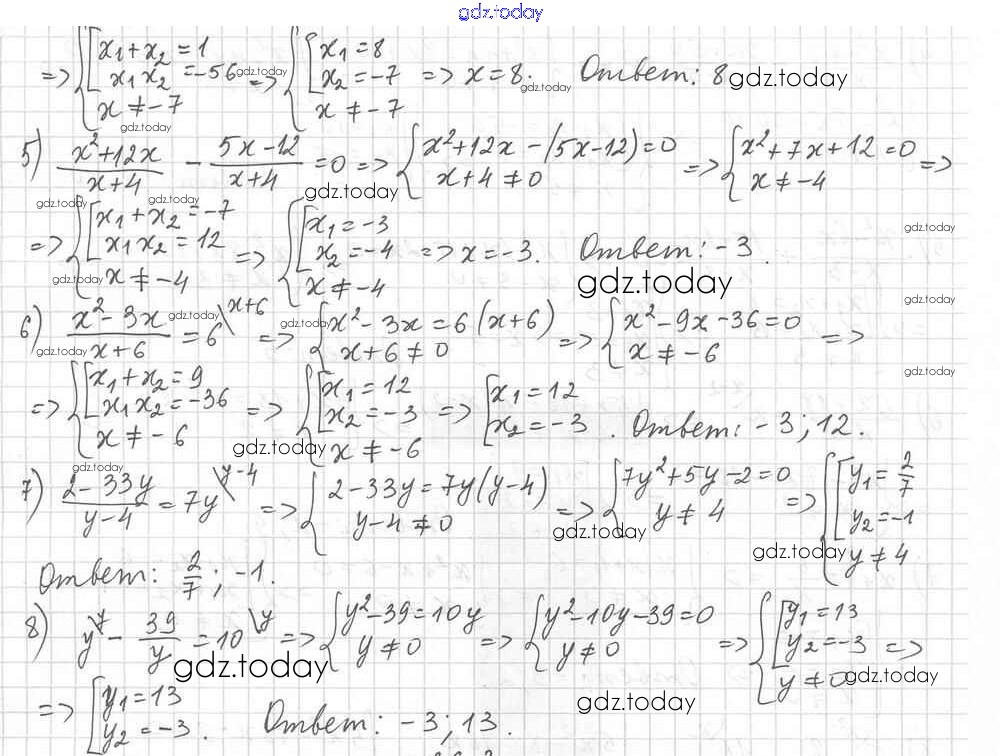 gdz.today
=> { [ x₁ + x₂ = 1 x₁x₂ = -56 x ≠ -7 => { [ x₁ = 8 x₂ = -7 x ≠ -7 => x = 8. Ответ: 8 gdz.today
gdz.today gdz.today gdz.today
5) (x² + 12x)/(x + 4) - (5x - 12)/(x + 4) = 0 => { x² + 12x - (5x - 12) = 0 x + 4 ≠ 0 => { x² + 7x + 12 = 0 x ≠ -4 =>
gdz.today gdz.today gdz.today gdz.today
=> { [ x₁ + x₂ = -7 x₁x₂ = 12 x ≠ -4 => { [ x₁ = -3 x₂ = -4 x ≠ -4 => x = -3. Ответ: -3.
gdz.today gdz.today
6) (x² - 3x)/(x + 6) = 6 \ x+6 => { x² - 3x = 6(x + 6) x + 6 ≠ 0 => { x² - 9x - 36 = 0 x ≠ -6 =>
gdz.today gdz.today gdz.today
=> { [ x₁ + x₂ = 9 x₁x₂ = -36 x ≠ -6 => { [ x₁ = 12 x₂ = -3 x ≠ -6 => [ x₁ = 12 x₂ = -3 . Ответ: -3; 12.
gdz.today gdz.today
7) (2 - 33y)/(y - 4) = 7y \ y-4 => { 2 - 33y = 7y(y - 4) y - 4 ≠ 0 => { 7y² + 5y - 2 = 0 y ≠ 4 => { [ y₁ = 2/7 y₂ = -1 y ≠ 4
gdz.today gdz.today
Ответ: 2/7; -1.
8) y \ y - 39/y = 10 \ y => { y² - 39 = 10y y ≠ 0 => { y² - 10y - 39 = 0 y ≠ 0 => { [ y₁ = 13 y₂ = -3 y ≠ 0 =>
gdz.today gdz.today
=> [ y₁ = 13 y₂ = -3 . Ответ: -3; 13.
gdz.today